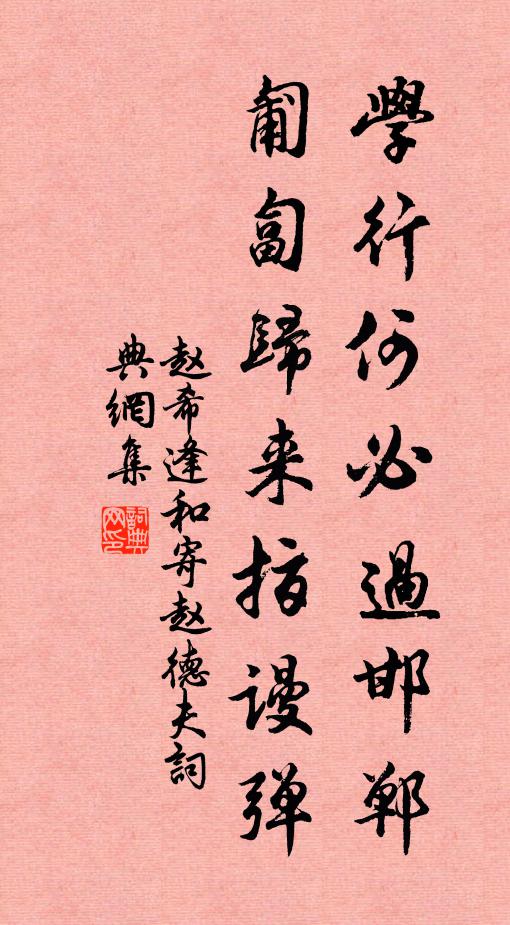 學行何必過邯鄲
匍匐歸来指謾弹
赵希逢和寄赵德夫詞
典網集
詞典网印